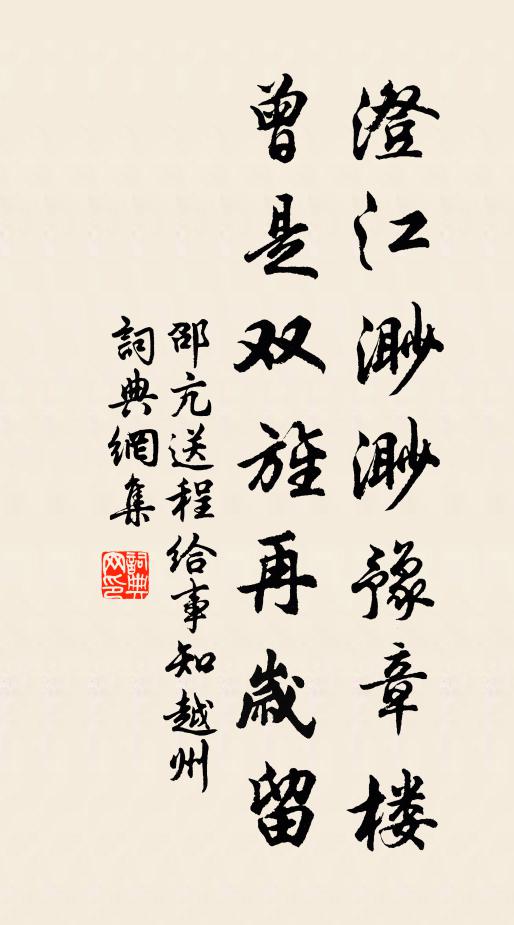 澄江渺渺豫章楼
曾是双旌再歲留
邵亢送程给事知越州
詞典網集
詞典
网印